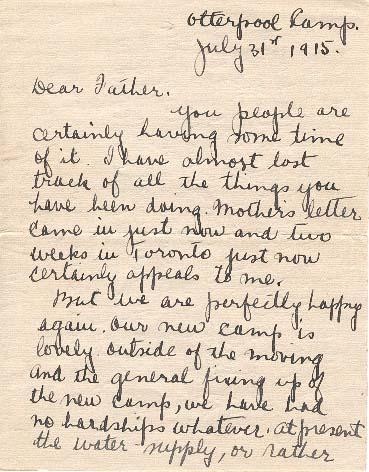 Otterpool Camp.
July 31st 1915.
Dear Father.
You people are
certainly having some time
of it. I have almost lost
track of all the things you
have been doing. Mother's letter
came in just now and two
weeks in Toronto just now
certainly appeals to me.
But we are perfectly happy
again. Our new camp is
lovely outside of the moving
and the general fixing up of
the new camp, we have had
no hardships whatever. At present
the water supply, or rather